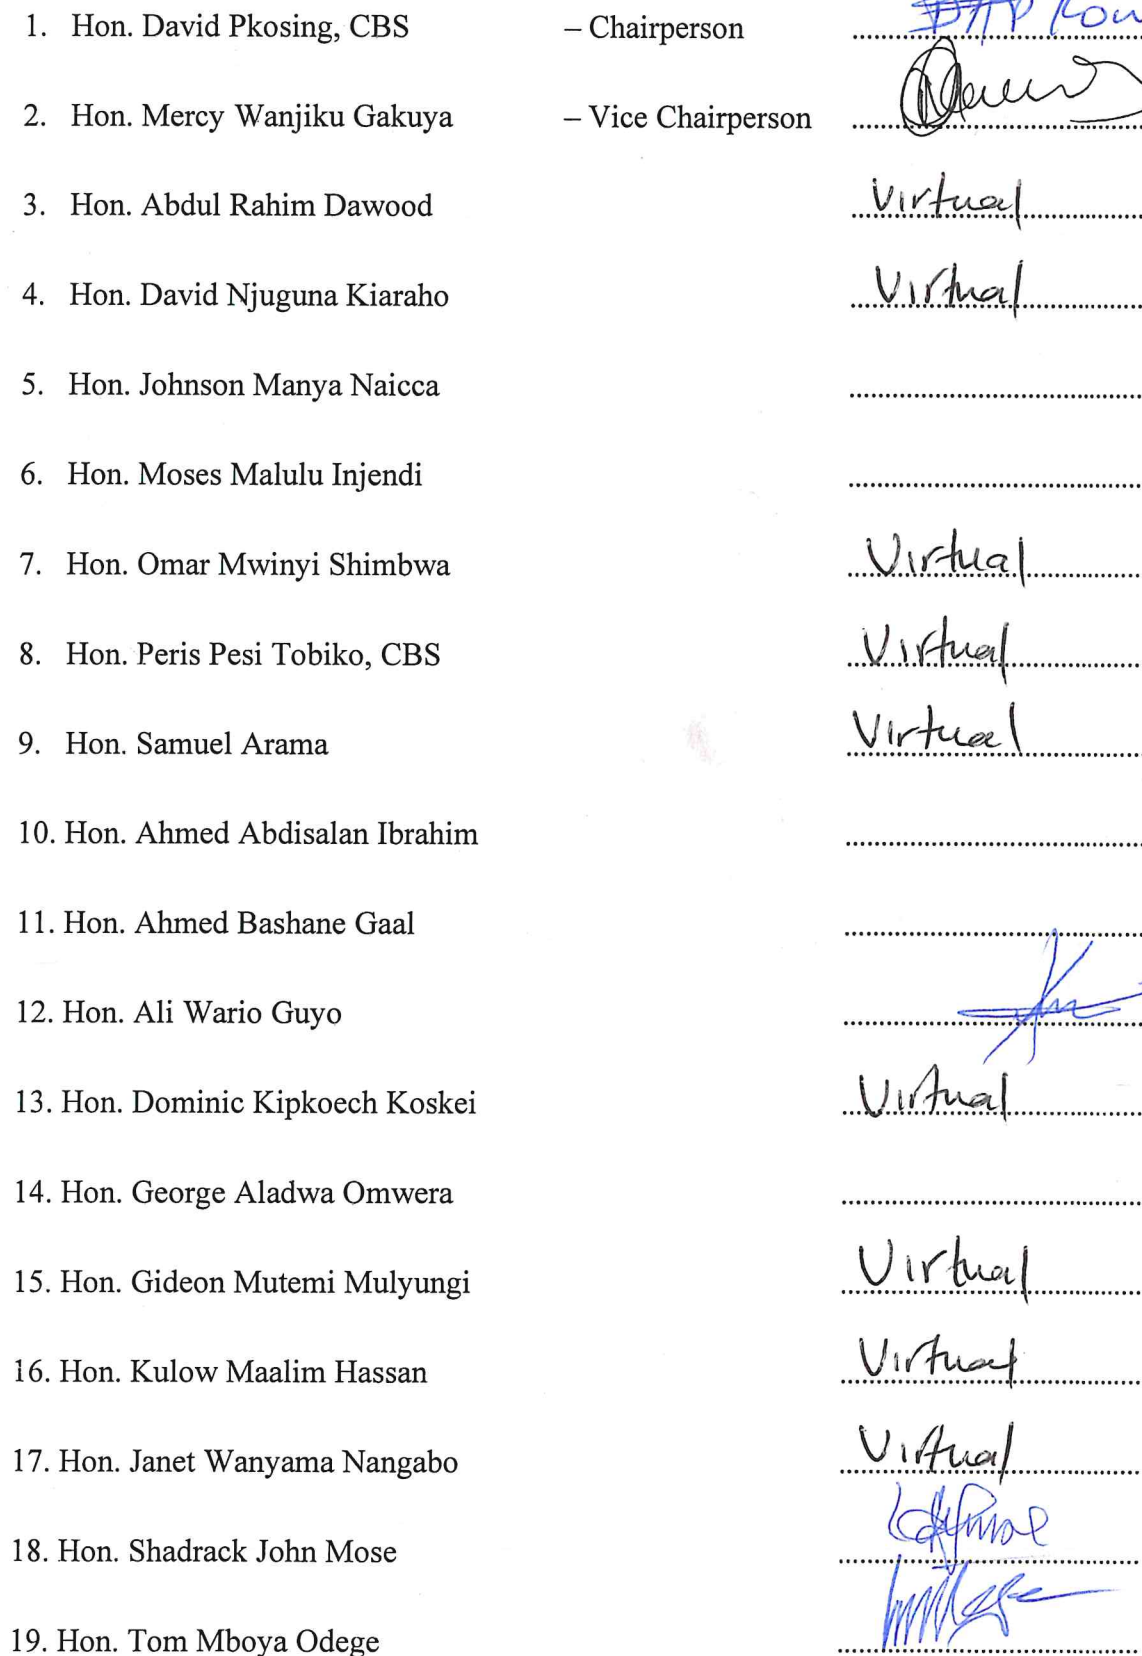 1. Hon. David Pkosing, CBS – Chairperson ........
2. Hon. Mercy Wanjiku Gakuya – Vice Chairperson ........
3. Hon. Abdul Rahim Dawood Virtual
4. Hon. David Njuguna Kiaraho Virtual
5. Hon. Johnson Manya Naicca ........
6. Hon. Moses Malulu Injendi ........
7. Hon. Omar Mwinyi Shimbwa Virtual
8. Hon. Peris Pesi Tobiko, CBS Virtual
9. Hon. Samuel Arama Virtual
10. Hon. Ahmed Abdisalan Ibrahim ........
11. Hon. Ahmed Bashane Gaal ........
12. Hon. Ali Wario Guyo ........
13. Hon. Dominic Kipkoech Koskei Virtual
14. Hon. George Aladwa Omwera ........
15. Hon. Gideon Mutemi Mulyungi Virtual
16. Hon. Kulow Maalim Hassan Virtual
17. Hon. Janet Wanyama Nangabo Virtual
18. Hon. Shadrack John Mose ........
19. Hon. Tom Mboya Odege ........